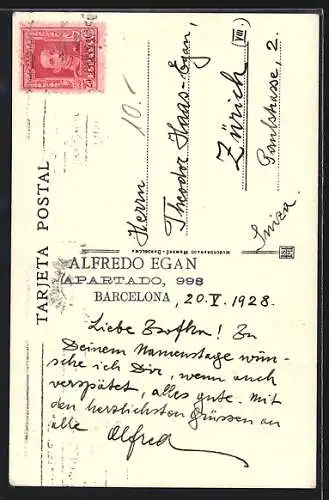 TARJETA POSTAL
10.-
Herrn
Theodor Haas-Egan,
Zürich (VIII)
Paulstrasse, 2.
ALFREDO EGAN
APARTADO, 998
BARCELONA, 20. V. 1928.
Liebe ! Zu
Deinem Namenstage wün-
sche ich Dir, wenn auch
verspätet, alles gute. Mit
den herzlichsten Grüssen an
alle Alfred